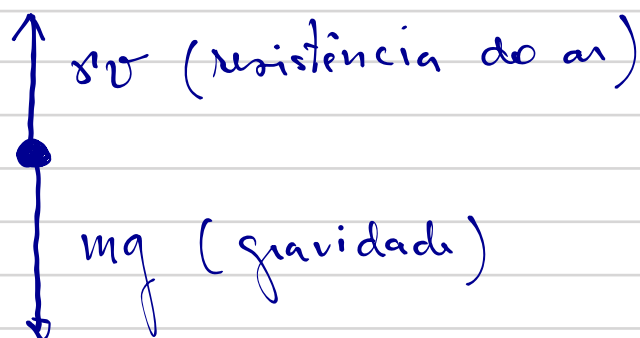 γv (resistência do ar)
mg (gravidade)